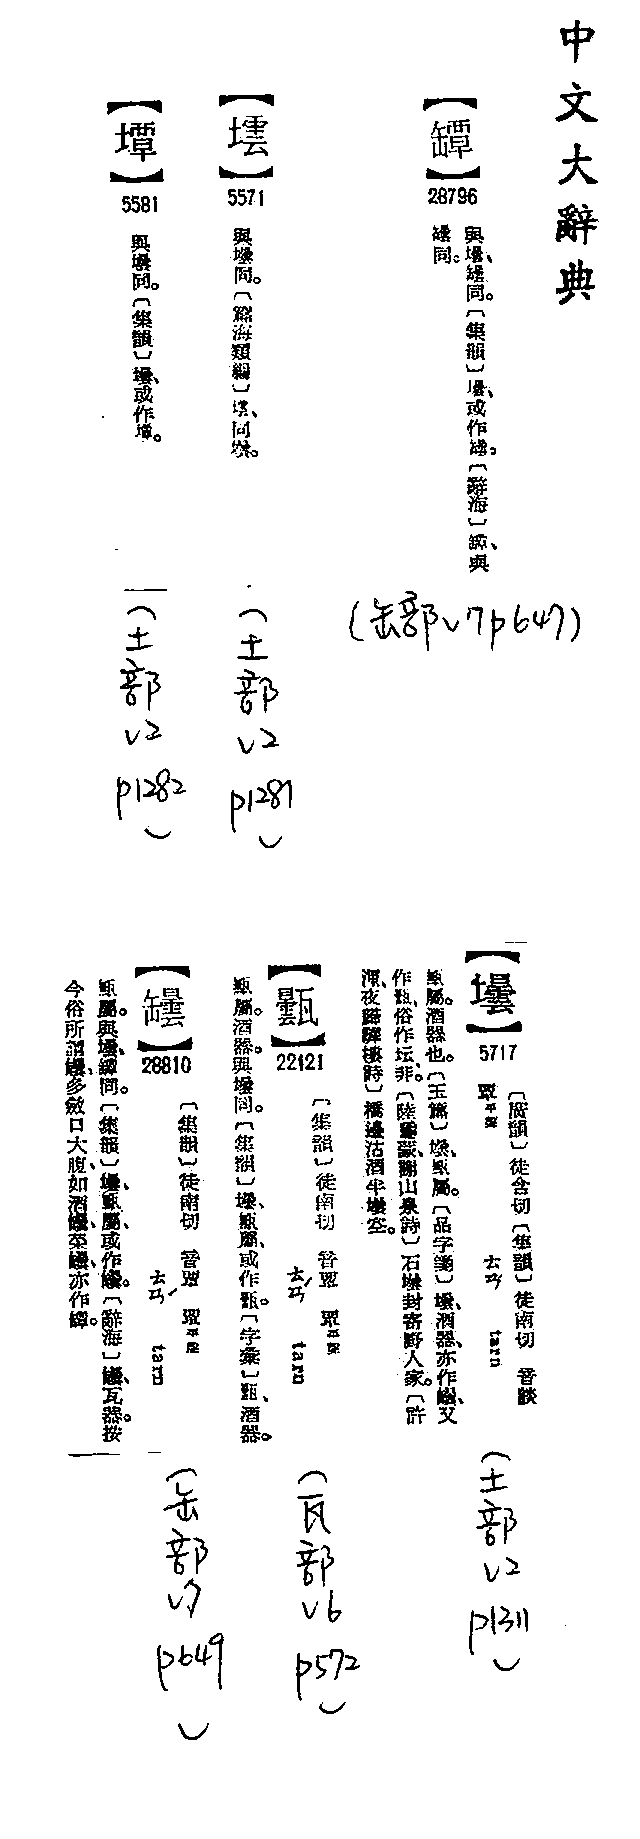 中文大辭典
【罈】
28796
與壜、罎同。〔集韻〕壜、或作罈。〔辭海〕罈、與
罎同。
(缶部v7p647)
【壇】
5571
與壜同。〔篇海類編〕
(土部v2p1281)
【墰】
5581
與壜同。〔集韻〕壜、或作墰。
(土部v2p1282)
【壜】
5717
〔廣韻〕徒含切〔集韻〕徒南切 音談
覃平聲 ㄊㄢ tarn
甀屬。酒器也。〔玉篇〕壜、甀屬。〔品字箋〕壜、酒器、亦作罎、又
作㽑、俗作坛、非。〔陸龜蒙、謝山泉詩〕石壜封寄野人家。〔許
渾、夜歸驛樓詩〕橋邊沽酒半壜空。
(土部v2p1311)
【㽑】
22121
〔集韻〕徒南切 音覃 覃平聲
ㄊㄢˊ tarn
甀屬。酒器。與壜同。〔集韻〕壜、甀屬、或作㽑。〔字彙〕㽑、酒器。
(瓦部v6p572)
【罎】
28810
〔集韻〕徒南切 音覃 覃平聲
ㄊㄢˊ tarn
甀屬。與壜、罈同。〔集韻〕壜、甀屬、或作罎。〔辭海〕罎、瓦器。按
今俗所謂罎、多斂口大腹、如酒罎、菜罎、亦作罈。
(缶部v7p649)